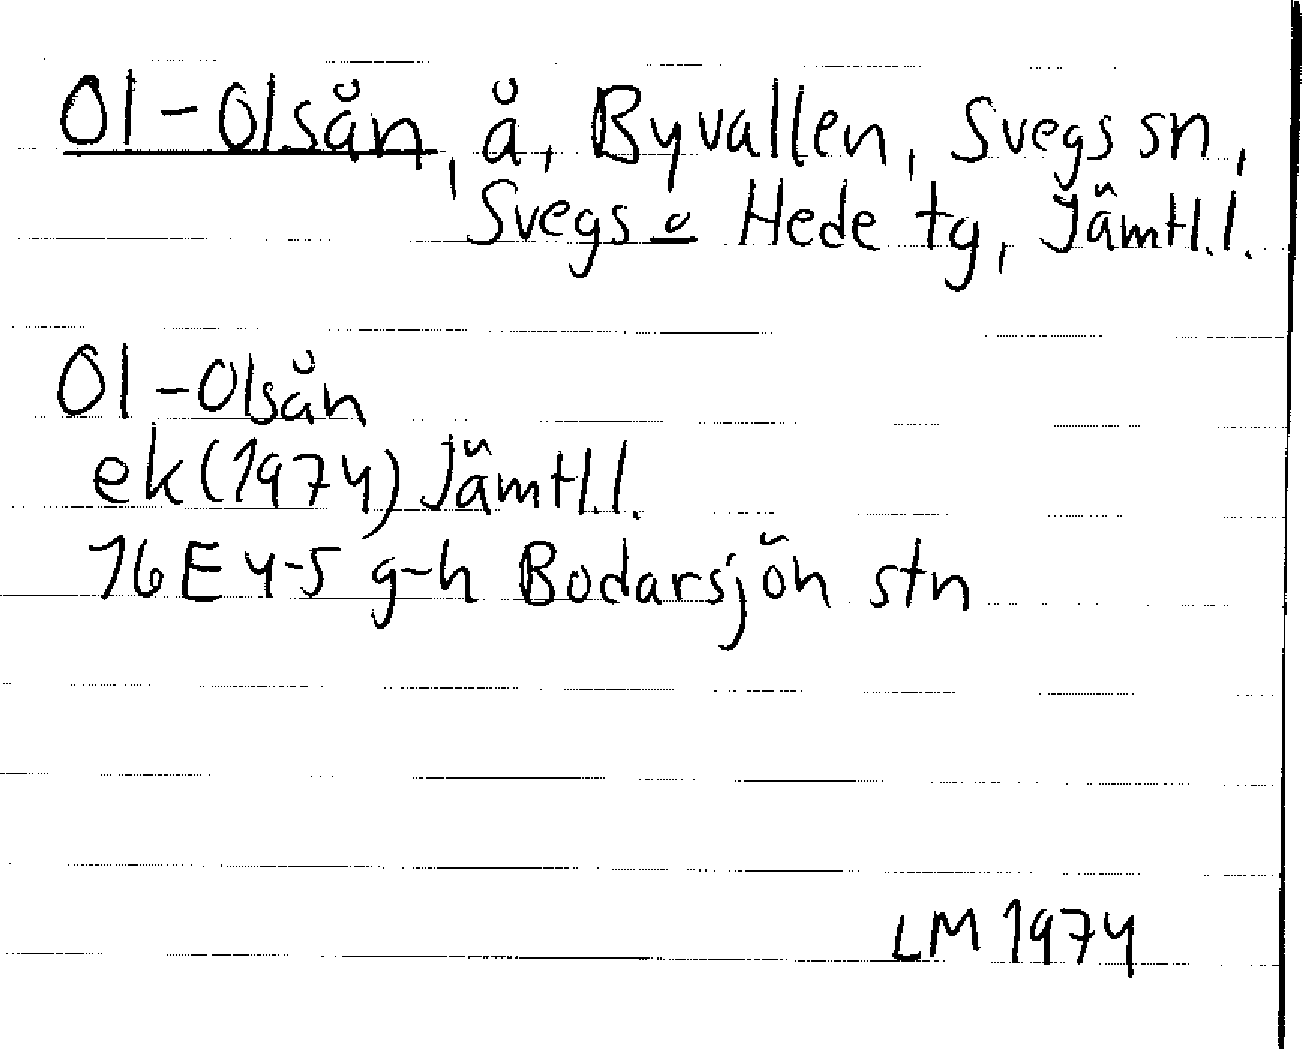 Ol-Olsån, å, Byvallen, Svegs sn,
Svegs o Hede tg, Jämtl.l.
Ol-Olsån
ek(1974) Jämtl.l.
16E 4-5 g-h Bodarsjön stn
LM 1974